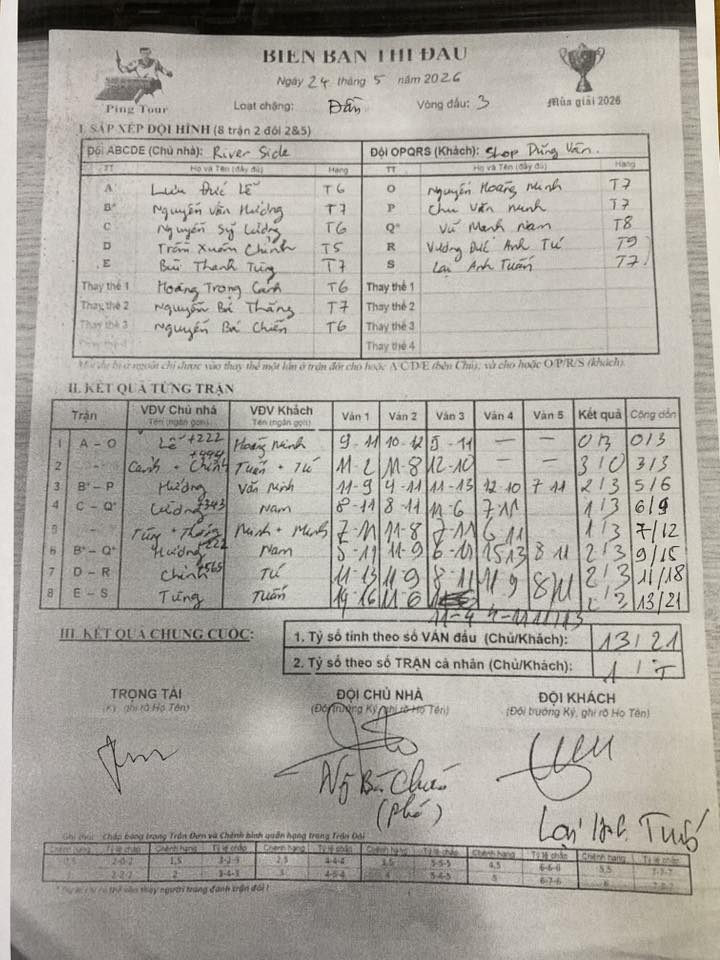 BIÊN BẢN THI ĐẤU
Ngày 24 tháng 5 năm 2026
Ping Tour
Loại chặng: Dần
Vòng đấu: 3
Mùa giải 2026
I. SẮP XẾP ĐỘI HÌNH (8 trận 2 đôi 2&5)
Đội ABCDE (Chủ nhà): River Side
Đội OPQRS (Khách): Shop Dũng Vân.
TT Họ và Tên (đầy đủ) Hạng TT Họ và Tên (đầy đủ) Hạng
A Lưu Đức Lễ T6 O Nguyễn Hoàng Minh T7
B* Nguyễn Văn Hướng T7 P Chu Văn Minh T7
C Nguyễn Sỹ Lương T6 Q* Vũ Mạnh Nam T8
D Trần Xuân Chinh T5 R Vương Đức Anh Tú T9
E Bùi Thanh Tùng T7 S Lại Anh Tuấn T7
Thay thế 1 Hoàng Trọng Cảnh T6 Thay thế 1
Thay thế 2 Nguyễn Bá Thăng T7 Thay thế 2
Thay thế 3 Nguyễn Bá Chiến T6 Thay thế 3
Thay thế 4 Thay thế 4
người chỉ được vào thay thế một lần ở trận đôi cho hoặc A/C/D/E (bên Chủ); và cho hoặc O/P/R/S (khách).
II. KẾT QUẢ TỪNG TRẬN
Trận VĐV Chủ nhà Tên (ngắn gọn) VĐV Khách Tên (ngắn gọn) Ván 1 Ván 2 Ván 3 Ván 4 Ván 5 Kết quả Cộng dồn
1 A – O Lễ +222 Hoàng Minh 9-11 10-12 5-11 — — 0/3 0/3
2 Cảnh + Chinh +444 Tuấn + Tú 11-2 11-8 12-10 — — 3/0 3/3
3 B* – P Hướng Văn Minh 11-9 4-11 11-13 12-10 7 11 2/3 5/6
4 C – Q* Lương +343 Nam 8-11 8-11 11-6 7-11 1/3 6/9
5 Tùng + Thăng Minh + Minh 7-11 11-8 7-11 6 11 1/3 7/12
6 B* – Q* Hướng +222 Nam 11-9 6-11 15 13 8 11 2/3 9/15
7 D – R Chinh +565 Tú 11-13 11-9 8-11 11 9 8/11 2/3 11/18
8 E – S Tùng Tuấn 14-16 11-6 2/3 13/21
III. KẾT QUẢ CHUNG CUỘC:
1. Tỷ số tính theo số VÁN đấu (Chủ/Khách): 13/21
2. Tỷ số theo số TRẬN cá nhân (Chủ/Khách):
TRỌNG TÀI ĐỘI CHỦ NHÀ ĐỘI KHÁCH
(Ký, ghi rõ Họ Tên) (Đội trưởng Ký, ghi rõ Họ Tên) (Đội trưởng Ký, ghi rõ Họ Tên)
Ng Bá Chiến
(Phó)
Lại Anh Tuấn
Ghi chú: Chấp bóng trong Trận Đơn và Chênh bình quân hạng trong Trận Đôi
Chênh hạng Tỷ lệ chấp Chênh hạng Tỷ lệ chấp Chênh hạng Tỷ lệ chấp Chênh hạng Tỷ lệ chấp Chênh hạng Tỷ lệ chấp Chênh hạng Tỷ lệ chấp
2-0-2 1,5 3-2-3 2,5 4-4-4 3,5 5-5-5 4,5 6-6-6 5,5 7-7-7
2-2-2 2 3-4-3 3 4-5-4 4 5-6-5 5 6-7-6 6